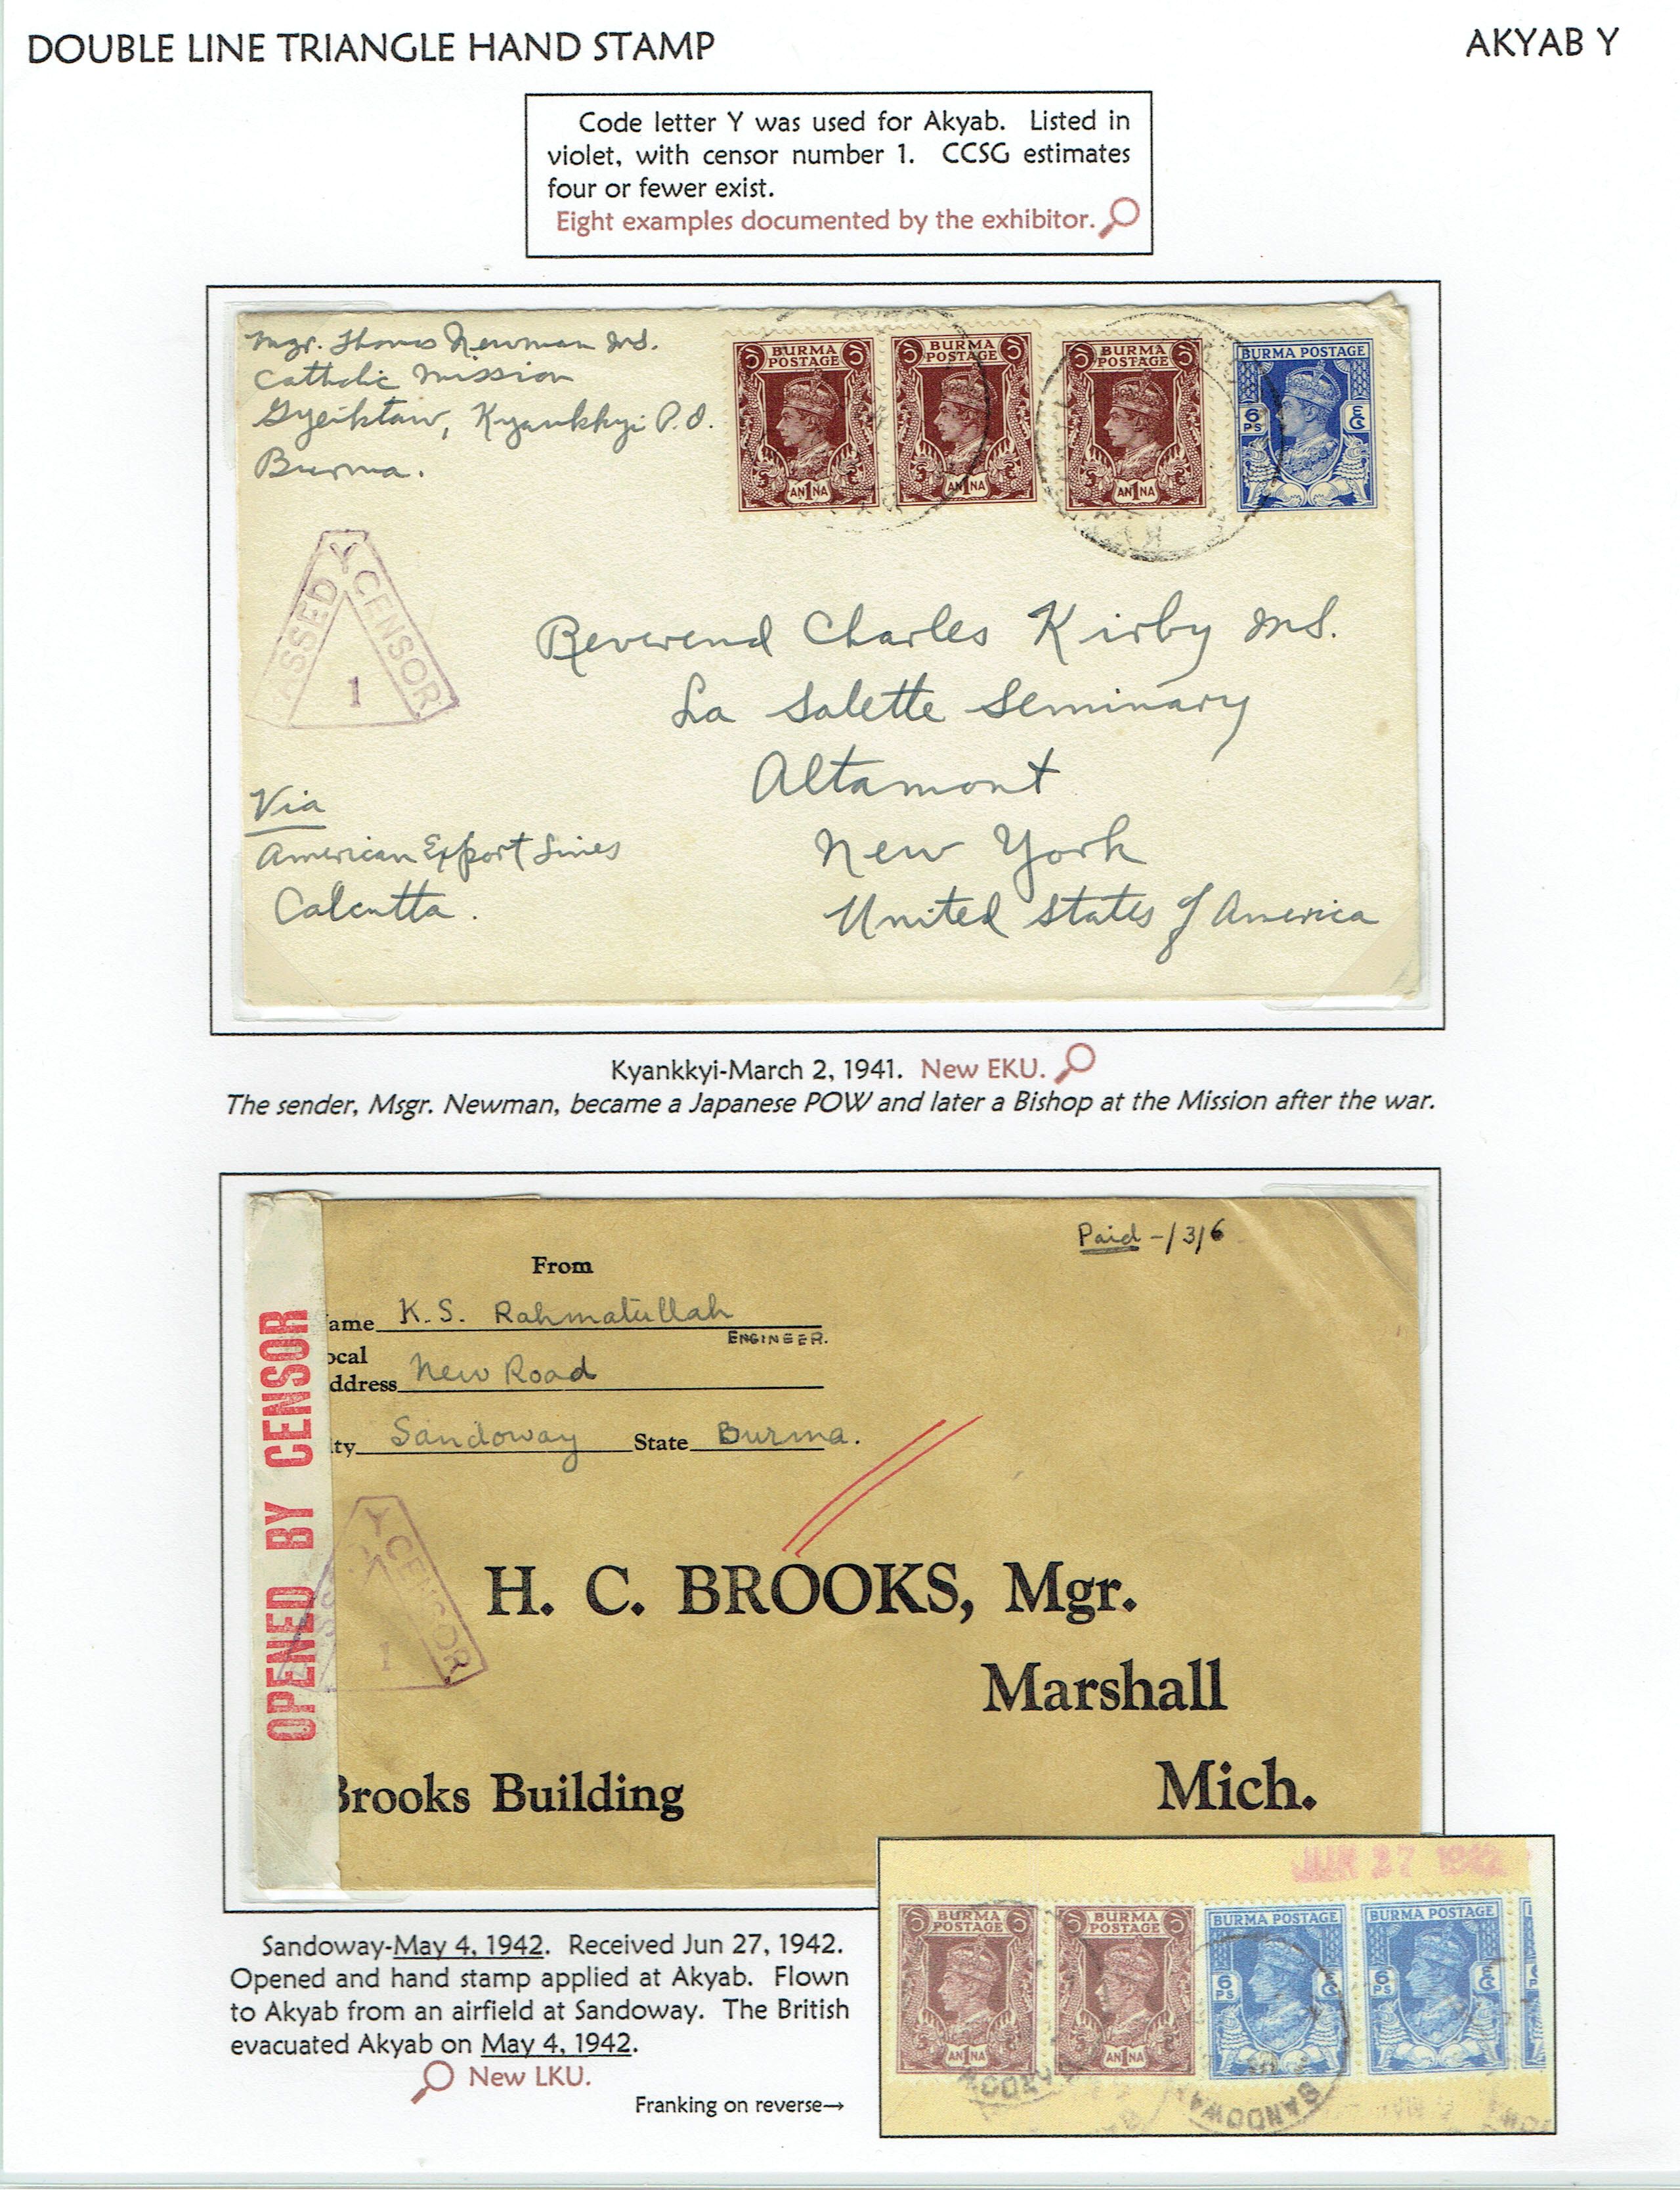 DOUBLE LINE TRIANGLE HAND STAMP
AKYAB Y
Code letter Y was used for Akyab. Listed in
violet, with censor number 1. CCSG estimates
four or fewer exist.
Eight examples documented by the exhibitor.
Mgr. Thomas Newman M.S.
Catholic Mission
Gyeiktaw, Kyankkyi P.O.
Burma.
BURMA POSTAGE
AN1NA
BURMA POSTAGE
AN1NA
BURMA POSTAGE
AN1NA
BURMA POSTAGE
6 PS
Y
ASSED CENSOR
1
Reverend Charles Kirby M.S.
La Salette Seminary
Altamont
New York
United States of America
Via
American Export Lines
Calcutta.
Kyankkyi-March 2, 1941. New EKU.
The sender, Msgr. Newman, became a Japanese POW and later a Bishop at the Mission after the war.
Paid -/3/6
From
ame K.S. Rahmatullah
ENGINEER.
ocal
ddress New Road
ty Sandoway State Burma.
OPENED BY CENSOR
Y
CENSOR
1
H. C. BROOKS, Mgr.
Marshall
Mich.
Brooks Building
JUN 27 1942
BURMA POSTAGE
AN1NA
BURMA POSTAGE
AN1NA
BURMA POSTAGE
6 PS
BURMA POSTAGE
6 PS
SANDOWAY
Sandoway-May 4, 1942. Received Jun 27, 1942.
Opened and hand stamp applied at Akyab. Flown
to Akyab from an airfield at Sandoway. The British
evacuated Akyab on May 4, 1942.
New LKU.
Franking on reverse→